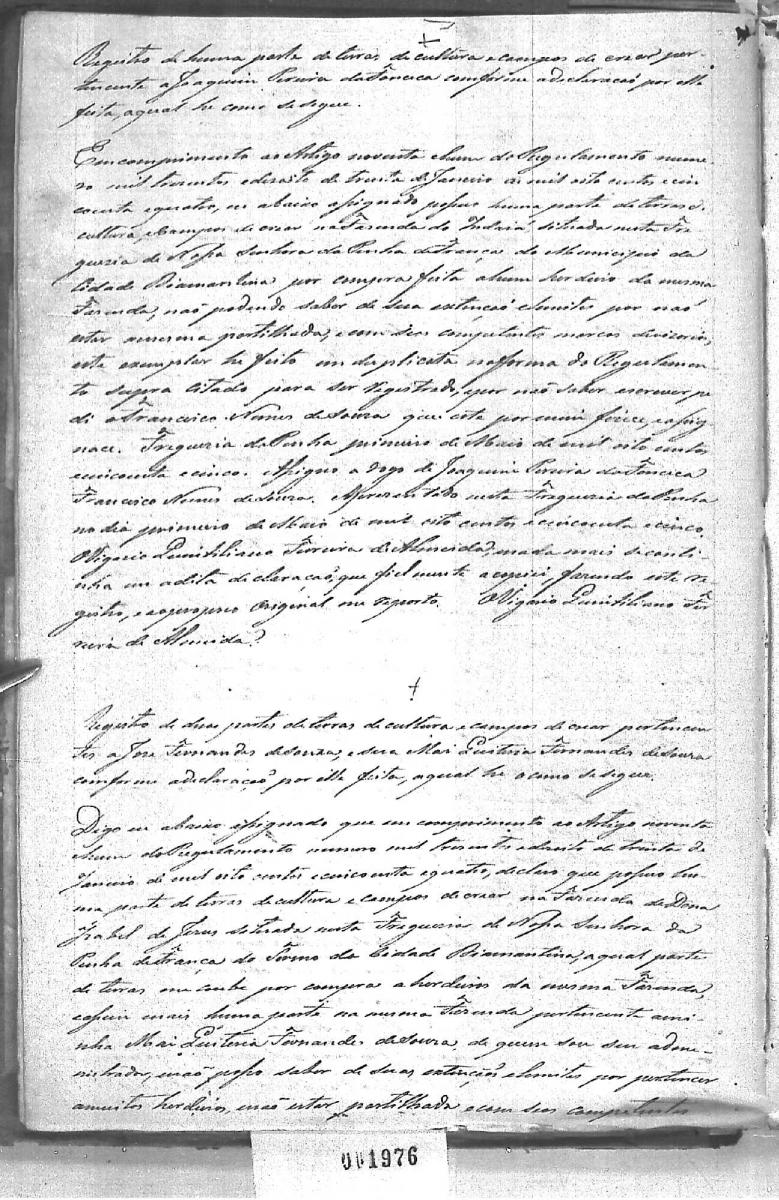 Registro de huma parte de terras de cultura e campos de crear per-
tencente a Joaquim Pereira da Fonceca conforme a declaracaõ por elle
feita, aqual he como se segue.
Em comprimento ao Artigo noventa e hum do Regulamento nume-
ro mil tresentos e desoite de trinta de Janeiro de mil oito centos e cin-
coenta e quatro, eu abaixo assignado possuo huma parte de terras de
cultura, e campos de crear na Fazenda do Indaiá, sitiada nesta Fre-
guezia de Nossa Senhora da Penha de França do Municipio da
Cidade Diamantina por compra feita a hum herdeiro da mesma
Fazenda, naõ podendo saber de sua extençaõ e limites por naõ
estar a mesma partilhada, e com seos competentes marcos devizorios,
este exemplar he feito em duplicata na forma do Regulamen-
to supra citado para ser registrado, e por naõ saber escrever, pe-
di a Francisco Nunes de Souza que este por mim fizece, e assig-
nace. Freguezia da Penha primeiro de Maio de mil oito centos
e cincoenta e cinco. Assigno a rogo de Joaquim Pereira da Fonceca
Francisco Nunes de Souza. Apresentado nesta Freguezia da Penha
no dia primeiro de Maio de mil oito centos e cincoenta e cinco.
O Vigario Quintiliano Ferreira de Almeida, e nada mais se conti-
nha em a dita declaracaõ, que fielmente a copiei, fazendo este re-
gistro, e ao proprio Original me reporto. O Vigario Quintiliano Fer-
reira de Almeida.
Registro de duas partes de terras de cultura e campos de crear pertencen-
tes a Jose Fernandes de Souza, e de sua Mai Quiteria Fernandes de Souza
conforme a declaraçaõ, por elle feita, aqual he o como se segue.
Digo eu abaixo assignado que em comprimento ao Artigo noventa
e hum do Regulamento numero mil tresentos e desoito de trinta de
Janeiro de mil oito centos e cincoenta e quatro, declaro que possuo hu-
ma parte de terras de cultura e campos de crear na Fazenda da Dona
Izabel de Jesus sitiada nesta Freguezia de Nossa Senhora da
Penha de França do Termo da Cidade Diamantina, a qual parte
de terras me coube por compras a herdeiros da mesma Fazenda,
e assim mais huma parte na mesma Fazenda pertencente a mi-
nha Mai Quiteria Fernandes de Souza, de quem sou seu adme-
nistrador, e naõ posso saber de suas extençoẽs e lemites por pertencer
a muitos herdeiros, e naõ estar partilhada e com seos competentes
001976